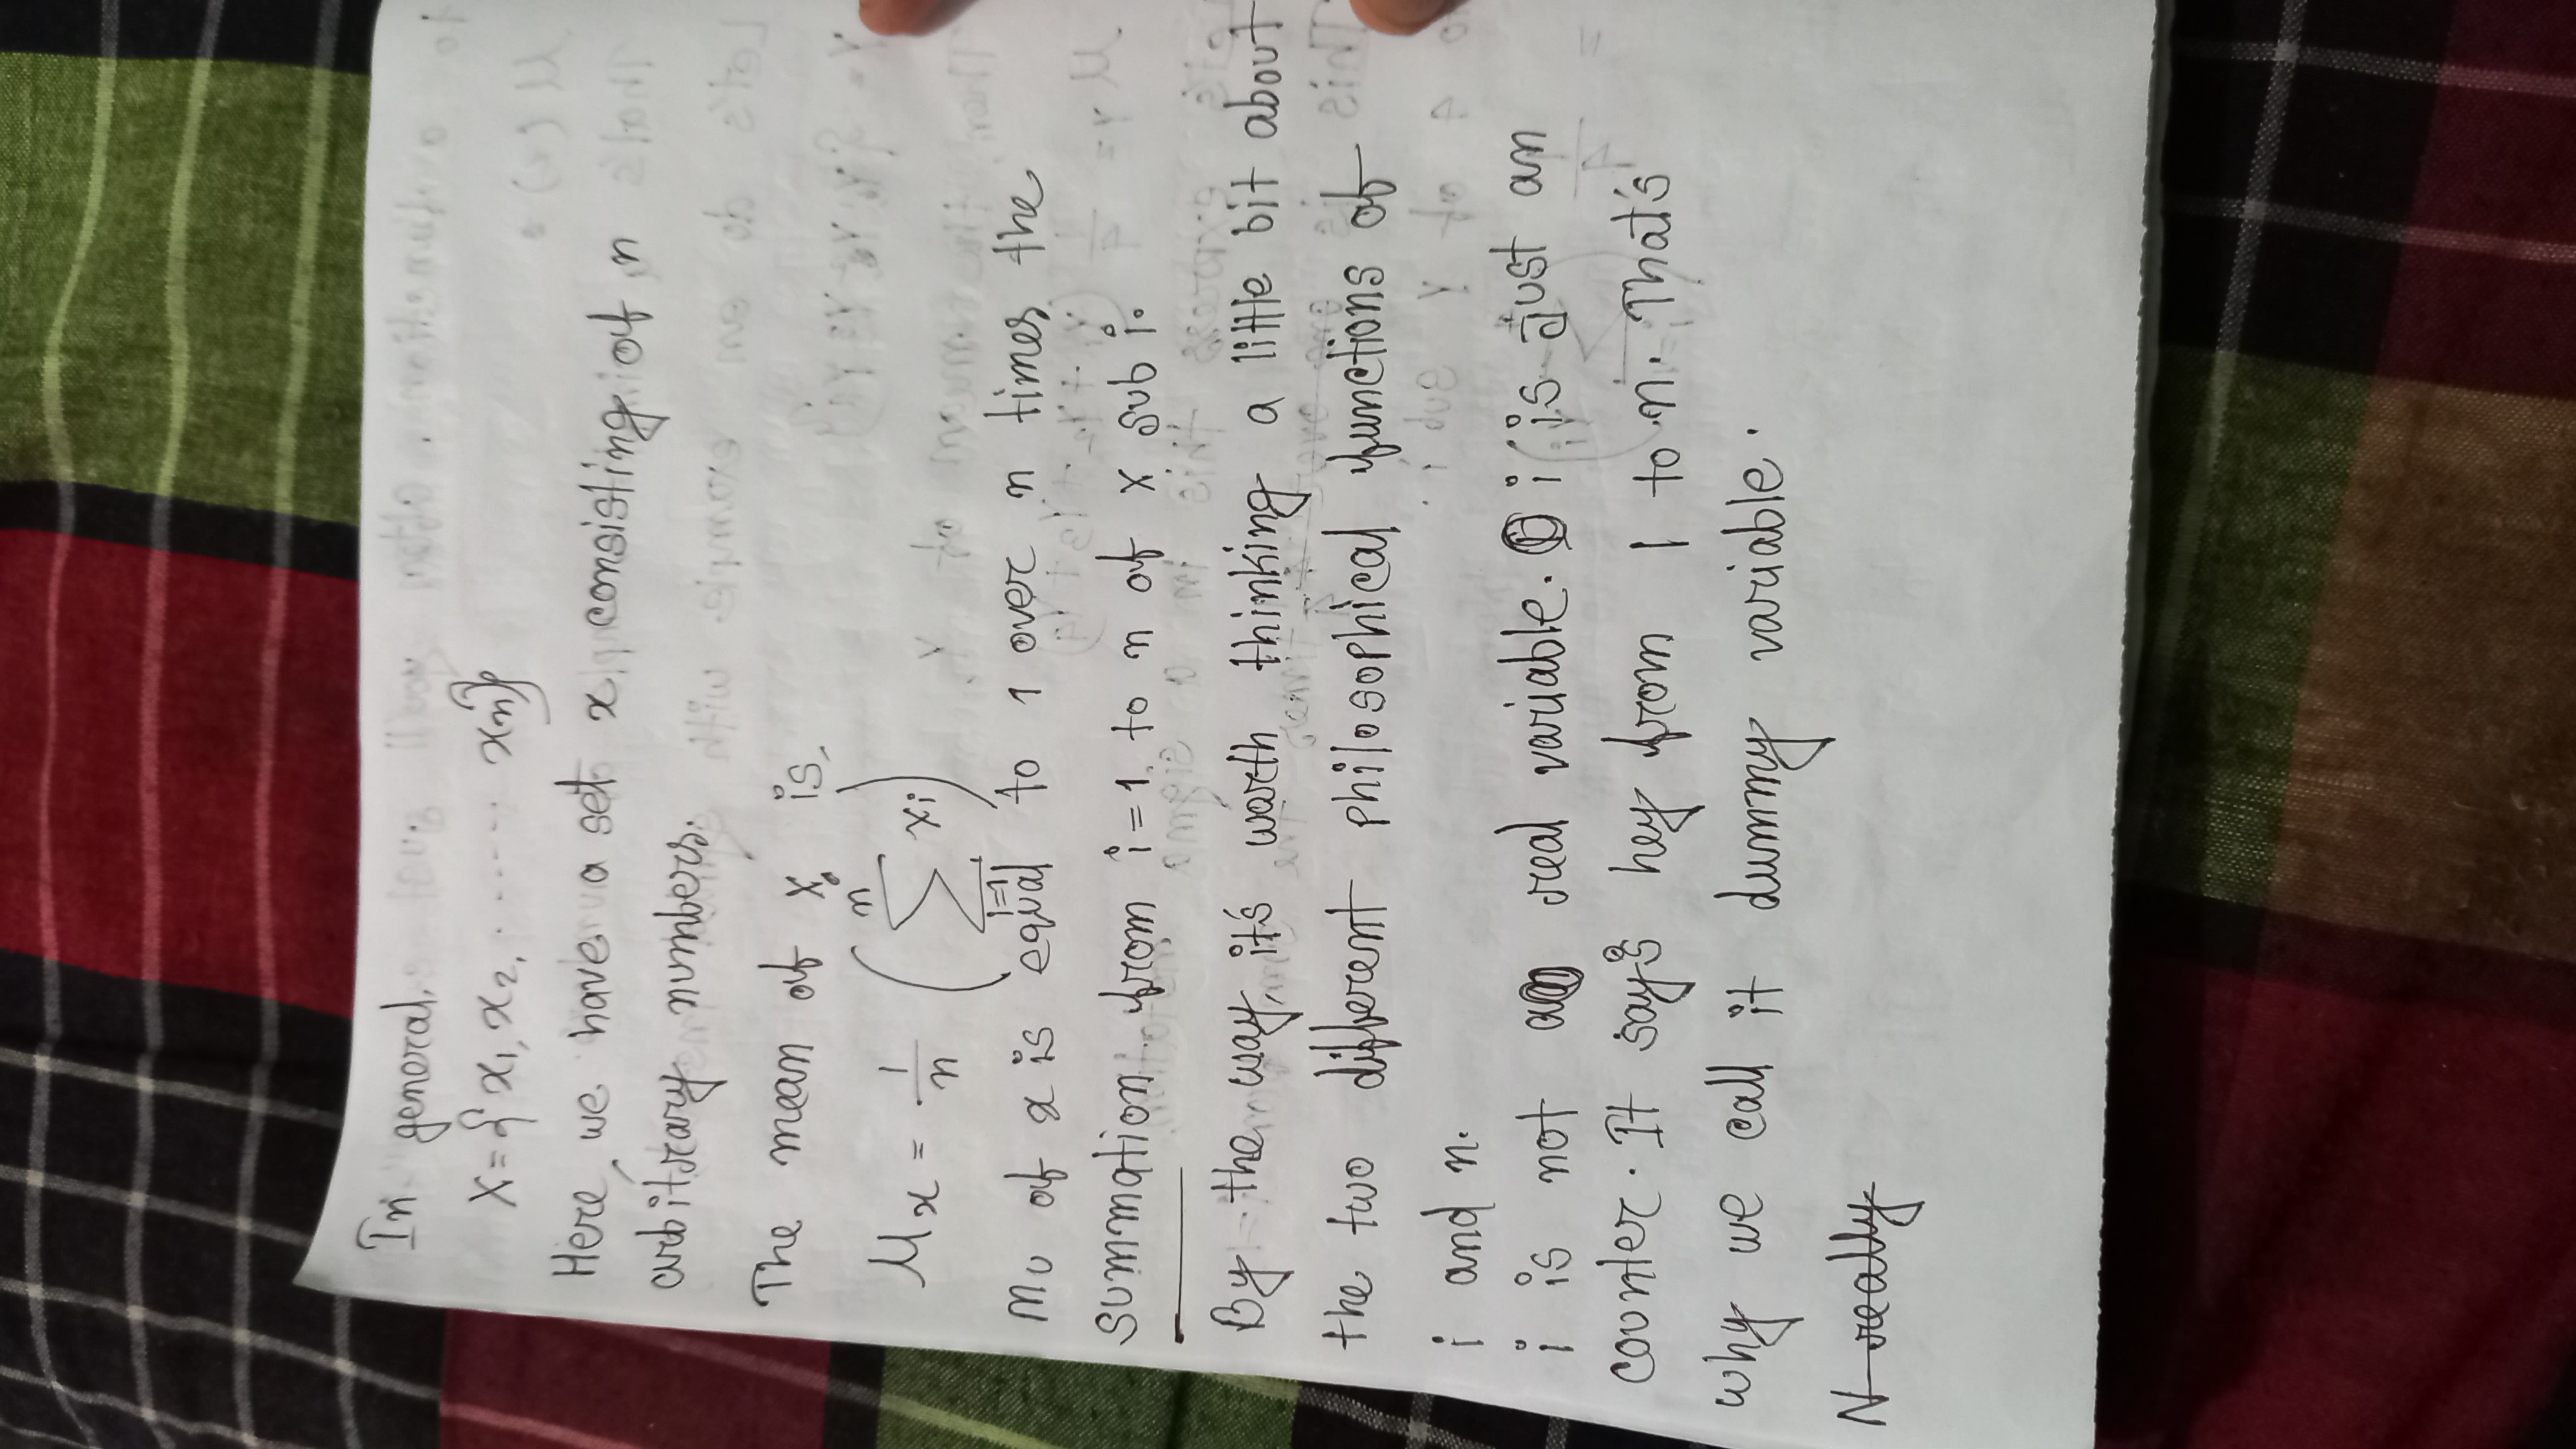 In general,
X = { x1, x2, ....... xn}
Here, we have a set x, consisting of n
arbitrary numbers.
The mean of X, is,
μx = 1/n ( n∑i=1 xi )
mu of x is equal to 1 over n times the
summation from i=1 to n of x sub i.
By the way, it's worth thinking a little bit about
the two different philosophical functions of
i and n.
i is not a real variable. i is just an
counter. It says hey from 1 to n. That's
why we call it dummy variable.
N really